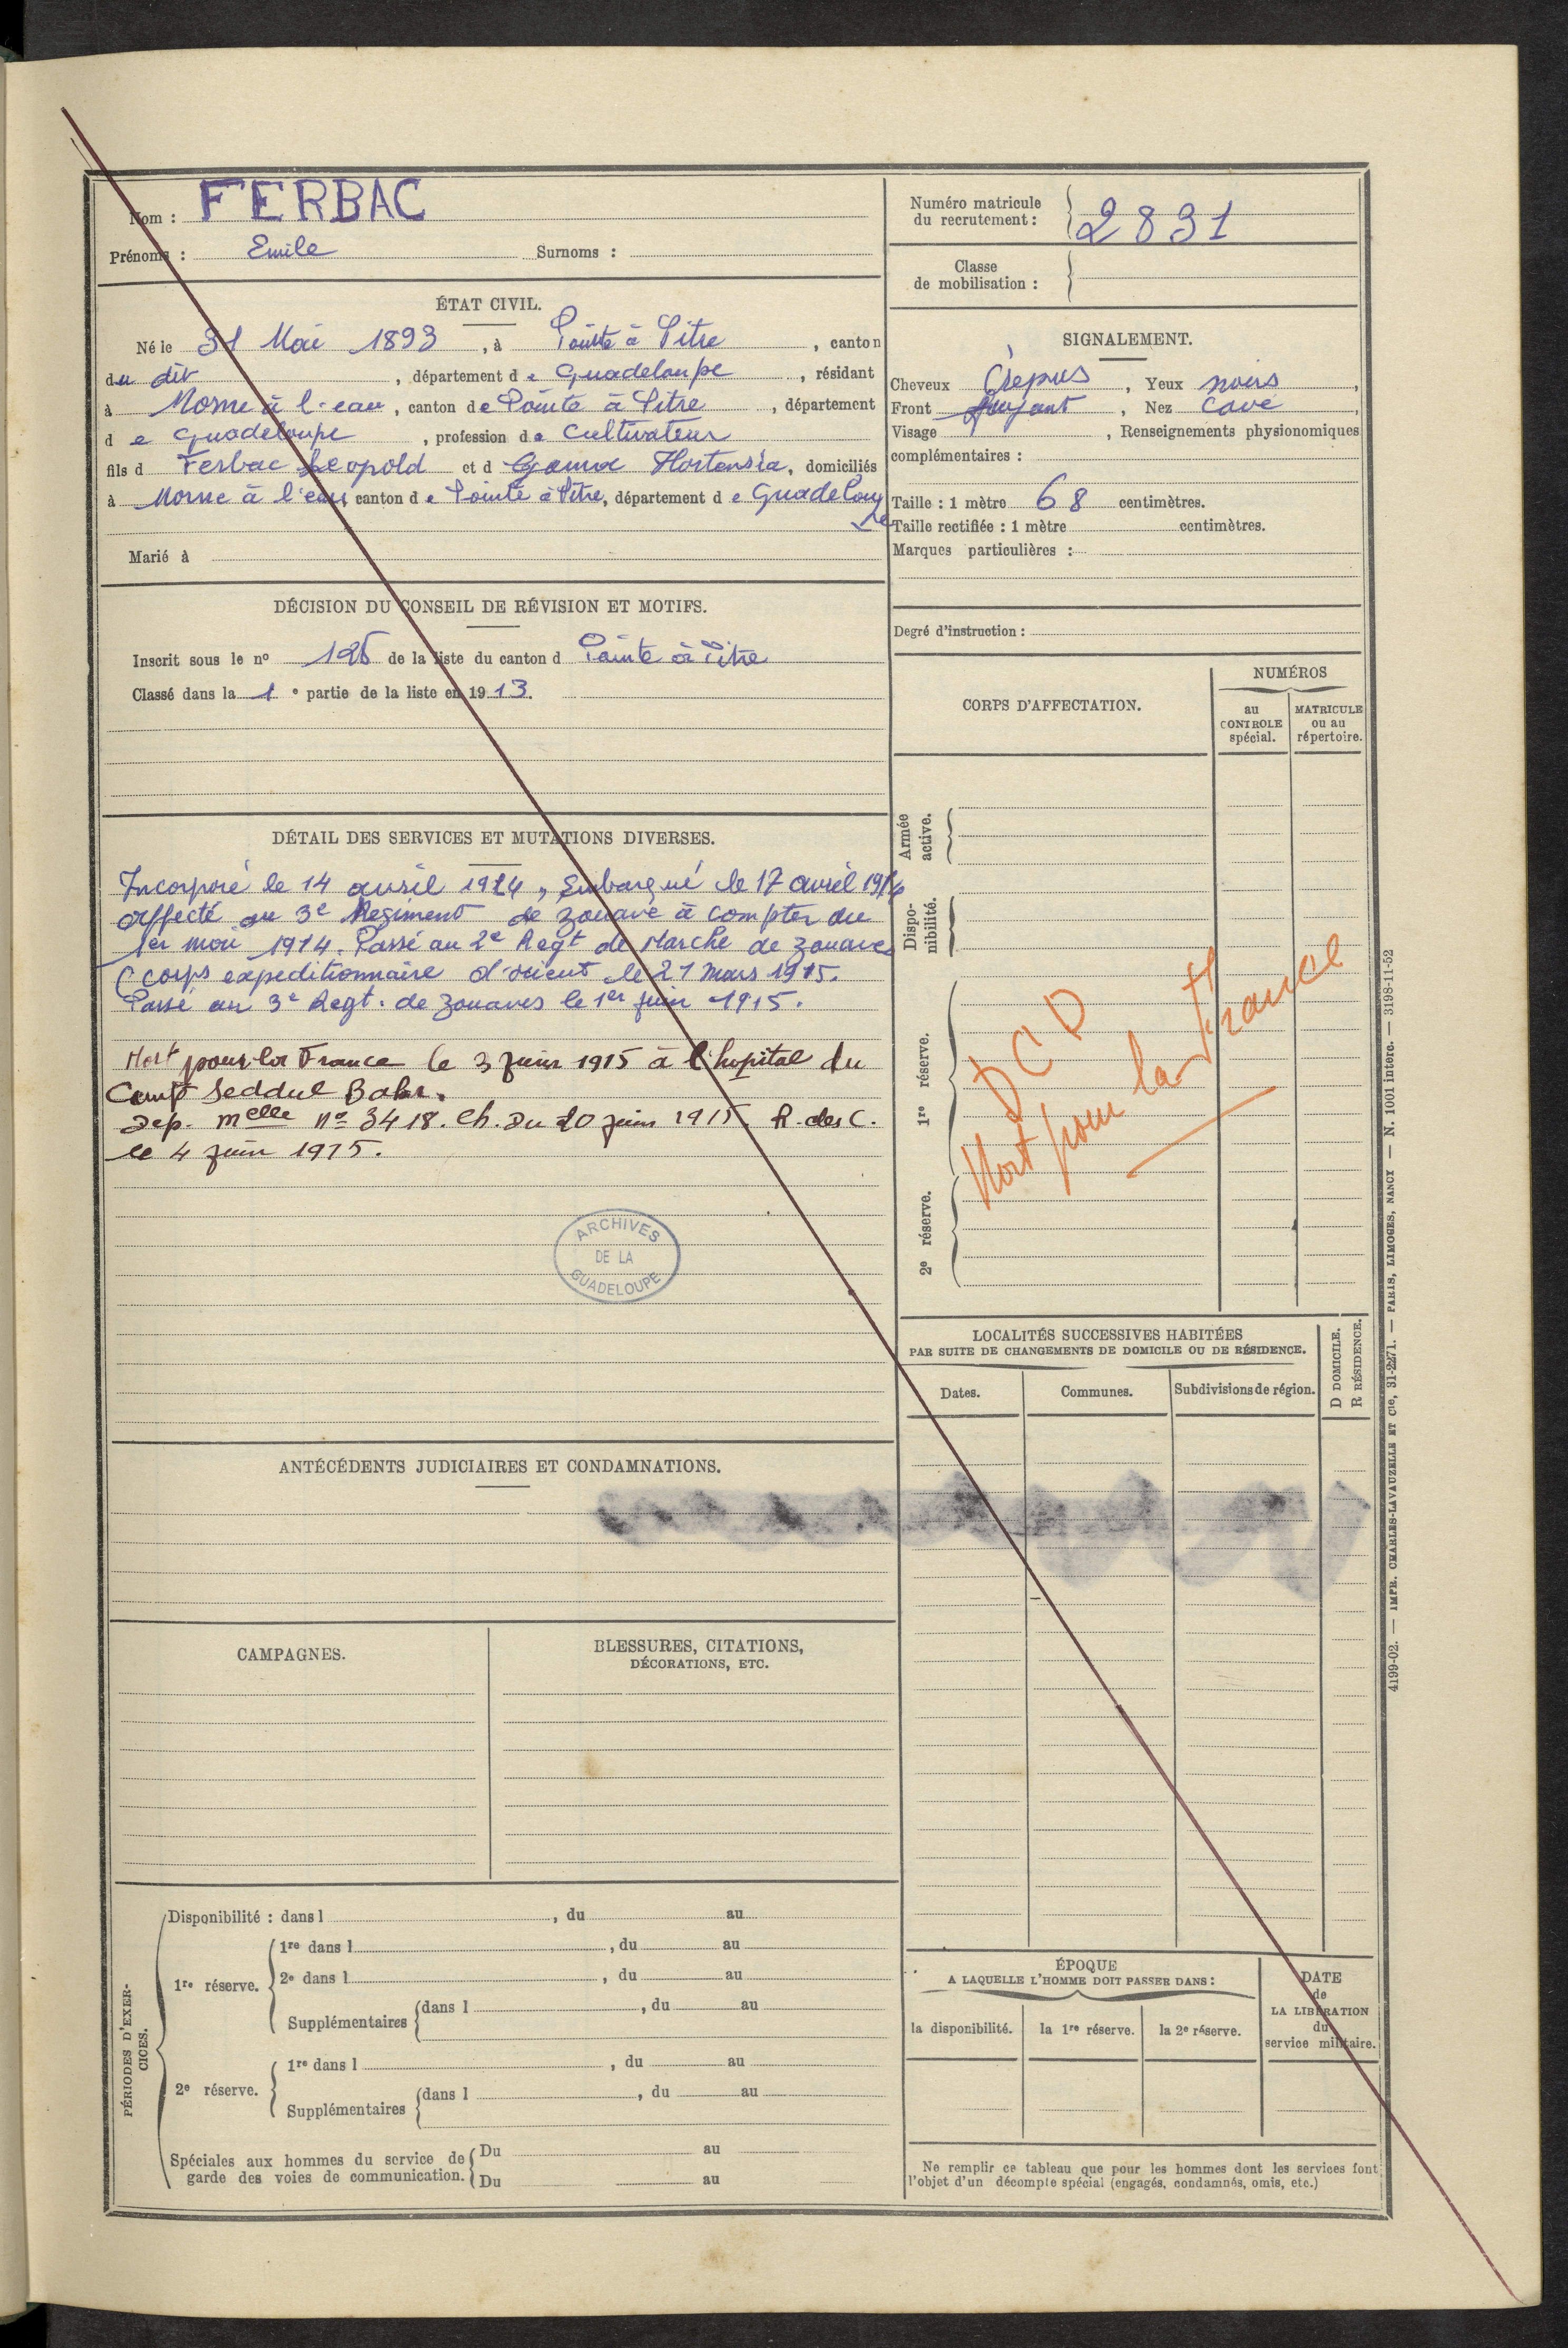 Nom : FERBAC
Prénoms : Emile Surnoms :
ÉTAT CIVIL.
Né le 31 Mai 1893, à Pointe à Pitre, canton
du dit, département de Guadeloupe, résidant
à Morne à l'eau, canton de Pointe à Pitre, département
de Guadeloupe, profession de Cultivateur
fils d Ferbac Leopold et d Hortensia, domiciliés
à Morne à l'eau, canton de Pointe à Pitre, département de Guadeloupe
Marié à
DÉCISION DU CONSEIL DE RÉVISION ET MOTIFS.
Inscrit sous le nº 125 de la liste du canton d Pointe à Pitre
Classé dans la 1e partie de la liste en 1913.
DÉTAIL DES SERVICES ET MUTATIONS DIVERSES.
Incorporé le 14 avril 1914, Embarqué le 17 avril 1914
affecté au 3e Regiment de zouave à compter du
1er mai 1914. Passé au 2e Regt de Marche de zouaves
(corps expeditionnaire d'orient le 21 mars 1915.
Passé au 3e Regt. de zouaves le 1er juin 1915.
Mort pour la France le 3 juin 1915 à l'hopital du
Camp Seddul Bahr.
Dep. melle nº 3418. Ch. du 20 juin 1915. R. des C.
le 4 juin 1915.
ARCHIVES
DE LA
GUADELOUPE
ANTÉCÉDENTS JUDICIAIRES ET CONDAMNATIONS.
CAMPAGNES.
BLESSURES, CITATIONS,
DÉCORATIONS, ETC.
PÉRIODES D'EXER-
CICES.
Disponibilité : dans l , du au
1re réserve.
1re dans l , du au
2e dans l , du au
Supplémentaires dans l , du au
2e réserve.
1re dans l , du au
Supplémentaires dans l , du au
Spéciales aux hommes du service de
garde des voies de communication.
Du au
Du au
Numéro matricule
du recrutement : 2891
Classe
de mobilisation :
SIGNALEMENT.
Cheveux Crepus, Yeux noirs,
Front fuyant, Nez Cave,
Visage , Renseignements physionomiques
complémentaires :
Taille : 1 mètre 68 centimètres.
Taille rectifiée : 1 mètre centimètres.
Marques particulières :
Degré d'instruction :
CORPS D'AFFECTATION.
NUMÉROS
au
CONTROLE
spécial.
MATRICULE
ou au
répertoire.
Armée
active.
Dispo-
nibilité.
1re réserve.
2e réserve.
DCD
Mort pour la France
LOCALITÉS SUCCESSIVES HABITÉES
PAR SUITE DE CHANGEMENTS DE DOMICILE OU DE RÉSIDENCE.
Dates.
Communes.
Subdivisions de région.
D DOMICILE.
R RÉSIDENCE.
ÉPOQUE
A LAQUELLE L'HOMME DOIT PASSER DANS :
la disponibilité.
la 1re réserve.
la 2e réserve.
DATE
de
LA LIBÉRATION
du
service militaire.
Ne remplir ce tableau que pour les hommes dont les services font
l'objet d'un décompte spécial (engagés, condamnés, omis, etc.)
4199-02. — IMPR. CHARLES-LAVAUZELLE ET Cie, 31-2271. — PARIS, LIMOGES, NANCY — N. 1001 intére. — 3198-11-52